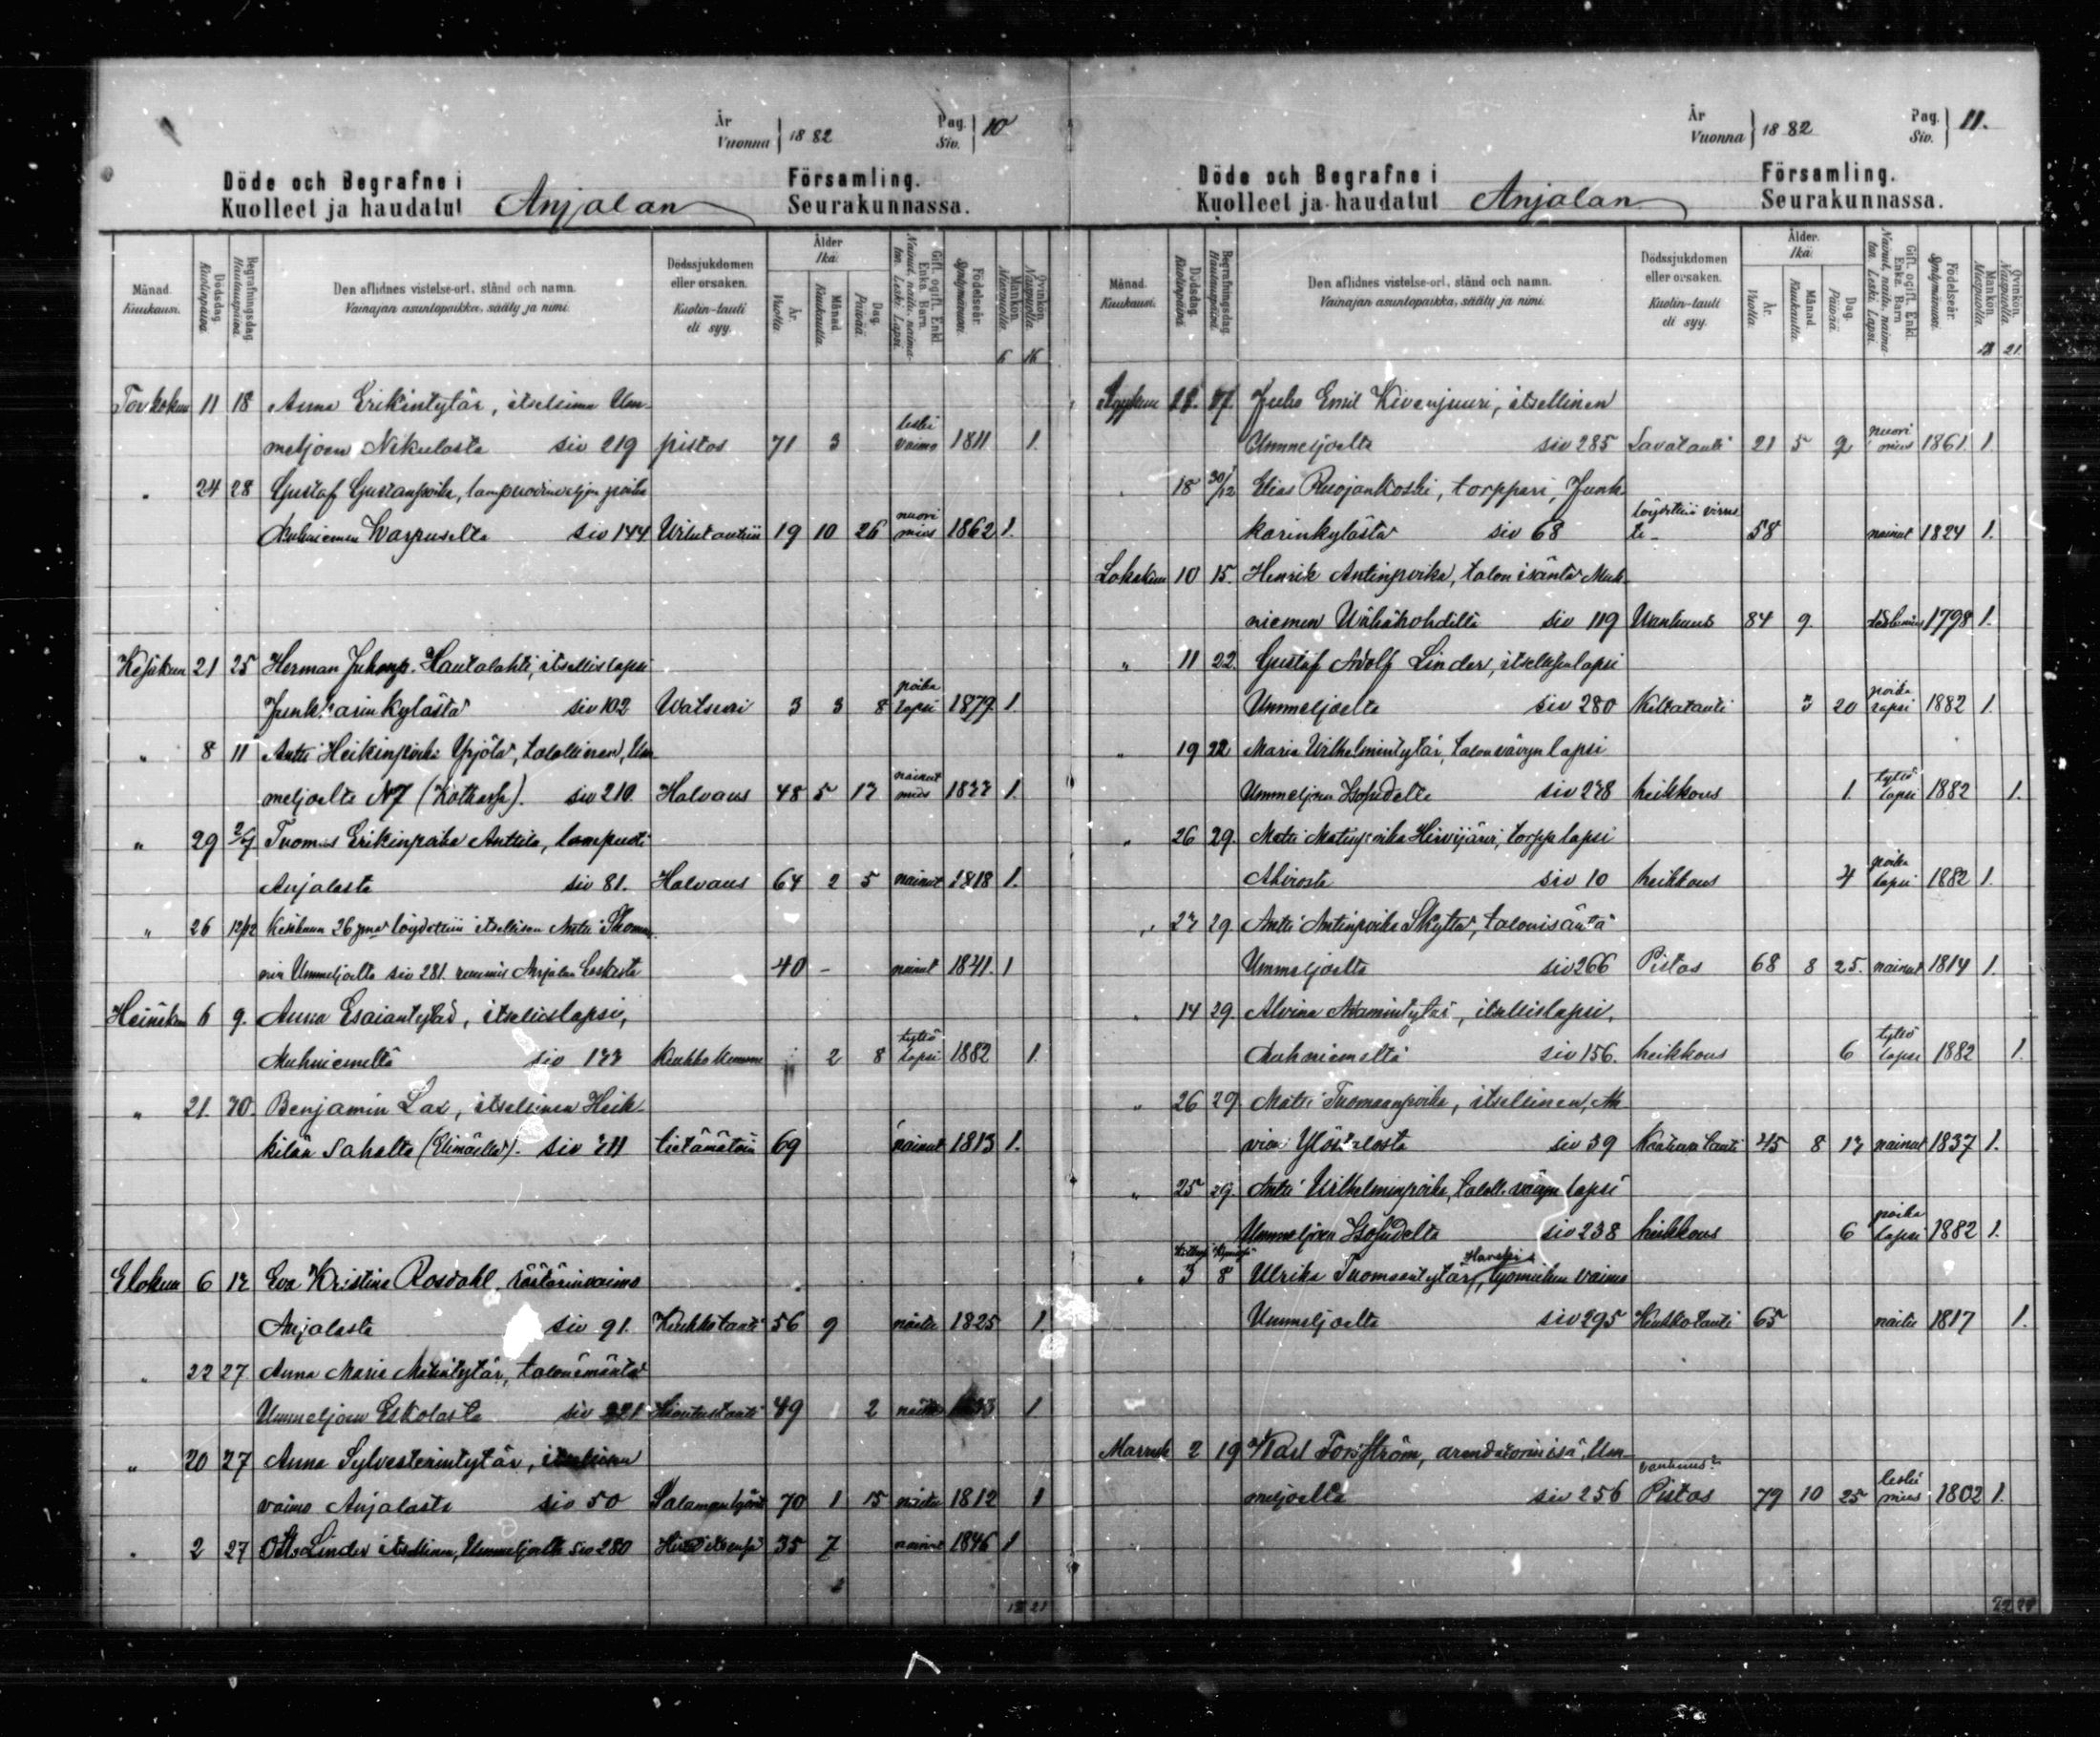 År
Vuonna } 1882
Pag.
Siv. } 10
Döde och Begrafne i Församling.
Kuolleet ja haudatut Anjalan Seurakunnassa.
Månad. Kuukausi.
Dödsdag. Kuolinpäivä.
Begrafningsdag. Hautauspäivä.
Den aflidnes vistelse-ort, stånd och namn.
Vainajan asuntopaikka, sääty ja nimi.
Dödssjukdomen eller orsaken.
Kuolin-tauti eli syy.
Ålder
Ikä.
År. Vuotta.
Månad. Kuukautta.
Dag. Päivää.
Gift, ogift, Enkl. Enka, Barn.
Nainut, naitu, naimaton, Leski, Lapsi.
Födelseår. Syntymävuosi.
Mankön. Miespuolia.
Qvinkön. Naispuolia.
6 16
Toukokuu 11 18 Anna Erikintytär, itsellinen Um-
meljoen Nikulasta siv 219 pistos 71 3 leski vaimo 1811 1.
" 24 28 Gustaf Gustanpoika, lampuodinveljen poika
Muhniemen Warpuselta siv 144 19 10 26 nuori mies 1862 1.
Kesäkuu 21 25 Herman Juhonp. Hautalahti, itsellislapsi
Junkkarinkylästä siv 102 Watsuri 3 3 8 poika lapsi 1879 1.
" 8 11 Antti Heikinpoika Yrjölä, talollinen, Um-
meljoelta N7 siv 210. Halvaus 48 5 17 nainut mies 1833 1.
" 29 2/7 Tuomas Erikinpoika Anttila, lampuoti
Anjalasta siv 81. Halvaus 64 2 5 nainut 1818 1.
" 26 Kesäkuun 26 pnä löydettiin itsellisen Antti
Ummeljoelta siv 281. ruumis Anjalan Koskesta 40 - nainut 1841. 1
Heinäkuu 6 9. Anna Esaiantytär, itsellislapsi,
Muhniemeltä siv 133 2 8 tyttö lapsi 1882 1.
" 21. 30. Benjamin Lax, itsellinen Heik-
kilän Sahalta (Elimäellä). siv 311 tietämätöin 69 nainut 1813 1.
Elokuu 6 13 Eva Kristina Rosdahl, räätärinvaimo
Anjalasta siv 91. Keuhkotauti 56 9 naitu 1825 1.
" 22 27 Anna Maria Matintytär, talonemäntä
Ummeljoen Eskolasta siv 221 49 2 naitu 1
" 20 27 Anna Sylvesterintytär, itsellisen
vaimo Anjalasta siv 50 70 1 15 naitu 1812 1
" 2 27 Otto Linder itsellinen, Ummeljoelta siv 280 35 7 nainut 1846 1
18 21
År
Vuonna } 1882
Pag.
Siv. } 11.
Döde och Begrafne i Församling.
Kuolleet ja haudatut Anjalan Seurakunnassa.
Månad. Kuukausi.
Dödsdag. Kuolinpäivä.
Begrafningsdag. Hautauspäivä.
Den aflidnes vistelse-ort, stånd och namn.
Vainajan asuntopaikka, sääty ja nimi.
Dödssjukdomen eller orsaken.
Kuolin-tauti eli syy.
Ålder.
Ikä.
År. Vuotta.
Månad. Kuukautta.
Dag. Päivää.
Gift, ogift, Enkl. Enka, Barn
Nainut, naitu, naimaton, Leski, Lapsi.
Födelseår. Syntymävuosi.
Mankön. Miespuolia.
Qvinkön. Naispuolia.
18 21.
Syyskuu Juho Emil Kivenjuuri, itsellinen
Ummeljoelta siv 285 Lavatauti 21 5 9 nuori mies 1861. 1.
" 18 Elias Ruojankoski, torppari, Junk-
karinkylästä siv 68 58 nainut 1824 1.
Lokakuu 10 15. Henrik Antinpoika, talon isäntä Muh-
niemen Wähäkohdilta siv 119 Wanhuus 84 9. leskimies 1798 1.
" 11 22. Gustaf Adolf Linder, itsellisenlapsi
Ummeljoelta siv 280 Keltatauti 3 20 poika lapsi 1882 1.
" 19 22 Maria Wilhelmintytär, talonvävyn lapsi
Ummeljoen siv 238 heikkous 1. tyttö lapsi 1882 1.
" 26 29. Matti Matinpoika Hirvijärvi, torpp lapsi
siv 10 heikkous 4 poika lapsi 1882 1.
" 23 29. Antti Antinpoika Skyttä, talonisäntä
Ummeljoelta siv 266 Pistos 68 8 25. nainut 1814 1.
" 14 29. Alvina Adamintytär, itsellislapsi,
Muhniemeltä siv 156. heikkous 6 tyttö lapsi 1882 1.
" 26 29. Matti Tuomaanpoika, itsellinen,
Ylöstalosta siv 39 45 8 17 nainut 1837 1.
" 25 29. Antti Wilhelminpoika, taloll. vävyn lapsi
Ummeljoen siv 238 heikkous 6 poika lapsi 1882 1.
" 3 8 Ulrika Tuomaantytär, työmiehen vaimo
Ummeljoelta siv 295 Keuhkotauti 65 naitu 1817 1.
Marrask 2 19 Karl Forsström, arendatorin isä, Um-
meljoelta siv 256 vanhuus? Pistos 79 10 25 leski mies 1802 1.